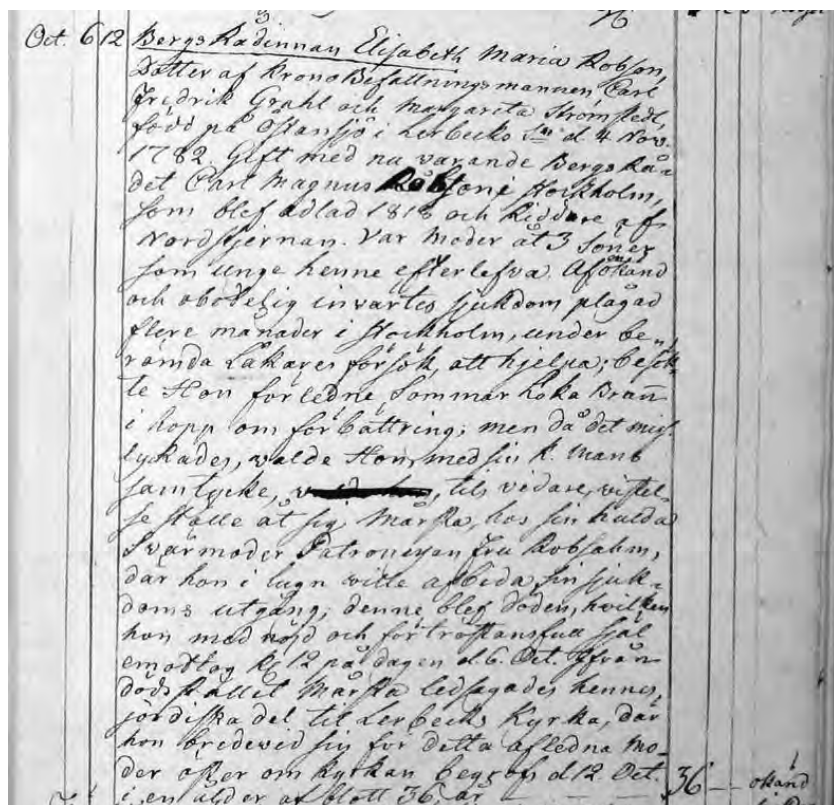 Oct. 6 12 BergsRådinnan Elisabeth Maria Robson,
Dotter af KronoBefallningsmannen Carl
Fredrik Grahl och Margareta Strömstedt,
född på Östansjö i Lerbecks Sn d. 4 Nov.
1782. Gift med nu varande BergsRå-
det Carl Magnus Robson i Stockholm,
som blef adlad 1818 och Riddare af
Nordstjernan. Var Moder åt 3 Söner
som unge henne efterlefva. Af okänd
och obotelig invärtes sjukdom plågad
flere månader i Stockholm, under be-
römda Läkares försök att hjelpa; besök-
te Hon förledne Sommar Loka Brun
i hopp om förbättring; men då det miss-
lyckades, valde Hon, med sin k. Mans
samtycke, til vidare vistel-
se ställe åt sig Mårsta, hos sin hulda
Svärmoder Patronessan Fru Robsahm,
där hon i lugn ville afbida sin sjuk-
doms utgång; denne blef döden, hvilken
hon med nöjd och förtröstansfull själ
emottog Kl 12 på dagen d. 6. Oct. Ifrån
dödsstället Mårsta ledsagades hennes
jordiska del til Lerbecks Kyrka, där
hon bredevid sin för detta afledna Mo-
der öster om Kyrkan begrofs d. 12 Oct.
i en ålder af blott 36 år 36 — okänd